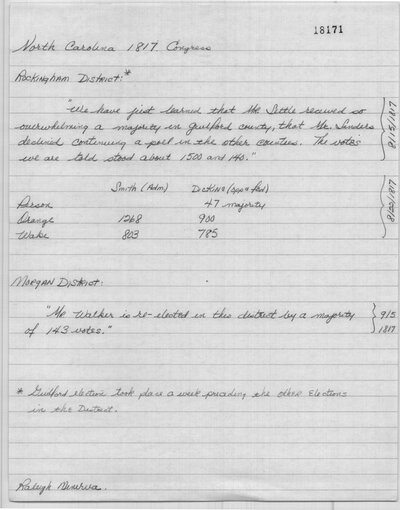 18171
North Carolina 1817. Congress
Rockingham District:*
"We have just learned that Mr. Settle received so
overwhelming a majority in Guilford county, that Mr. Sanders
declined continuing a poll in the other counties. The votes
we are told stood about 1500 and 140."
8/15/1817
Smith (Adm) Dickins (opp. Fed)
Person 47 majority
Orange 1268 900
Wake 803 785
8/22/1817
Morgan District:
"Mr Walker is re-elected in this district by a majority
of 143 votes."
9/5
1817
* Guilford election took place a week preceding the other Elections
in the District.
Raleigh Minerva.